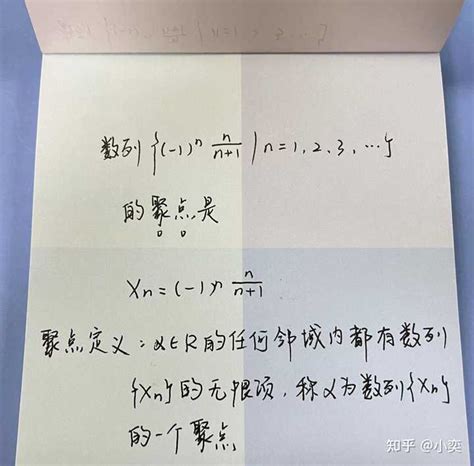 数列{(-1)ⁿ n/(n+1) | n=1,2,3,…}
的聚点是
Xn=(-1)ⁿ n/(n+1)
聚点定义：α∈R的任何邻域内都有数列
{Xn}的无限项，称α为数列{Xn}
的一个聚点
知乎 @小奕